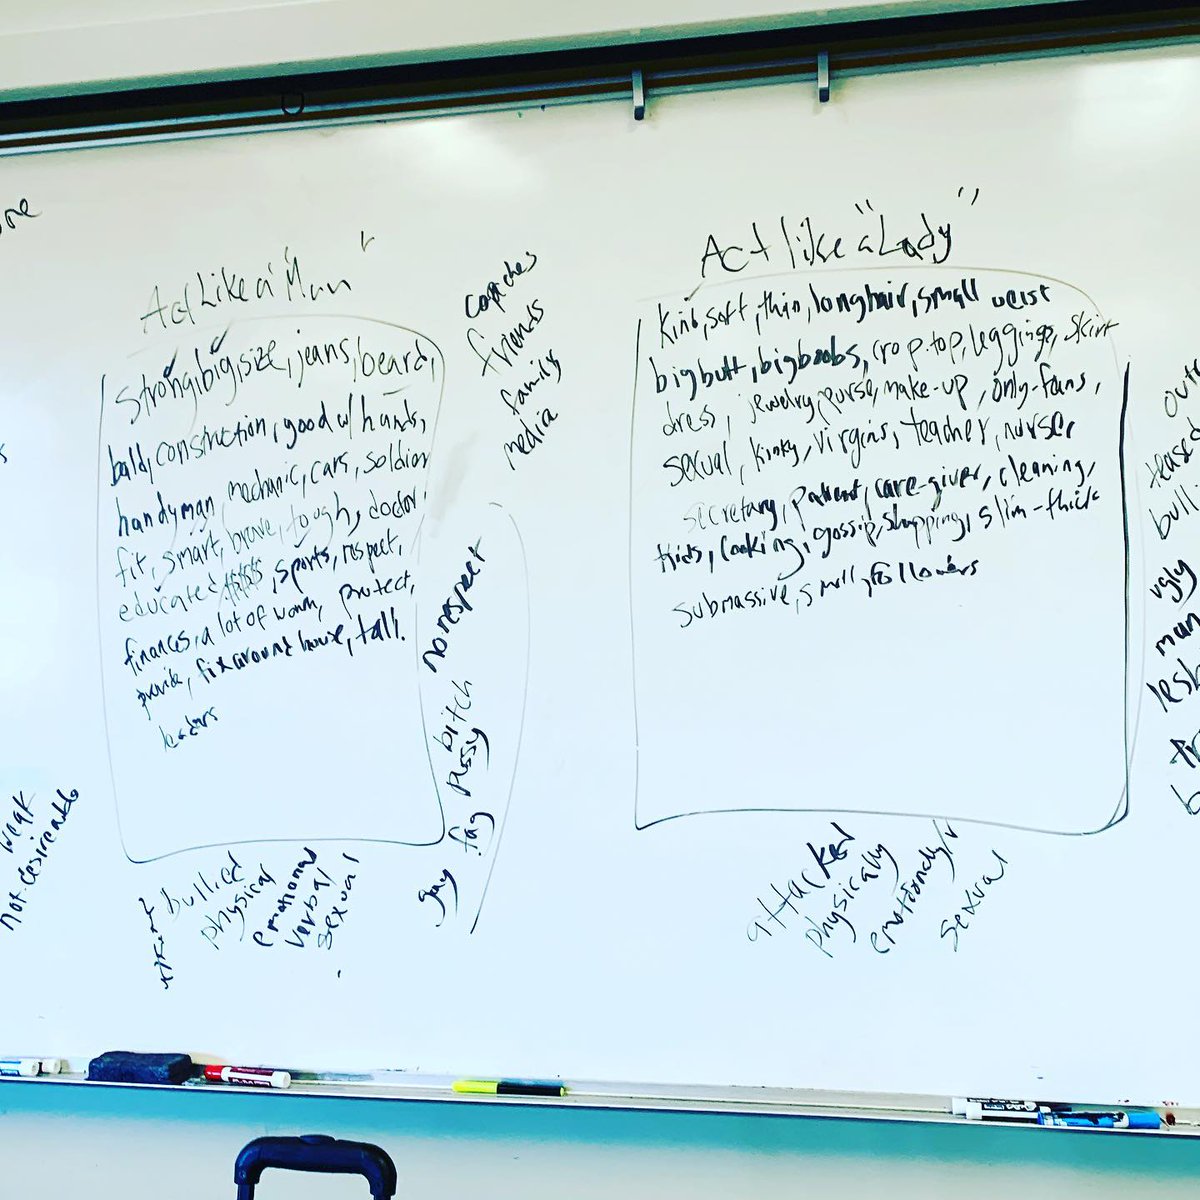 Act Like a "Man"
strong, big, size, jeans, beard,
bald, construction, good w/ hands,
handyman, mechanic, cars, soldier
fit, smart, brave, tough, doctor,
educated, sports, respect,
finances, a lot of women, protect,
provide, fix around house, tall.
leaders
coaches
friends
family
media
no respect
bitch
pussy
fag
gay
weak
not desireable
bullied
physical
emotional
verbal
sexual
Act like a "Lady"
kind, soft, thin, long hair, small weist
big butt, big boobs, crop-top, leggings, skirt
dress, jewelry, purse, make-up, only-fans,
sexual, kinky, virgins, teacher, nurse
secretary, patient, care-giver, cleaning,
kids, cooking, gossip, shopping, slim-thick
submassive, small, followers
attacked
physically
emotionally/v
sexual
teased
bulli
ugly
man
lesb